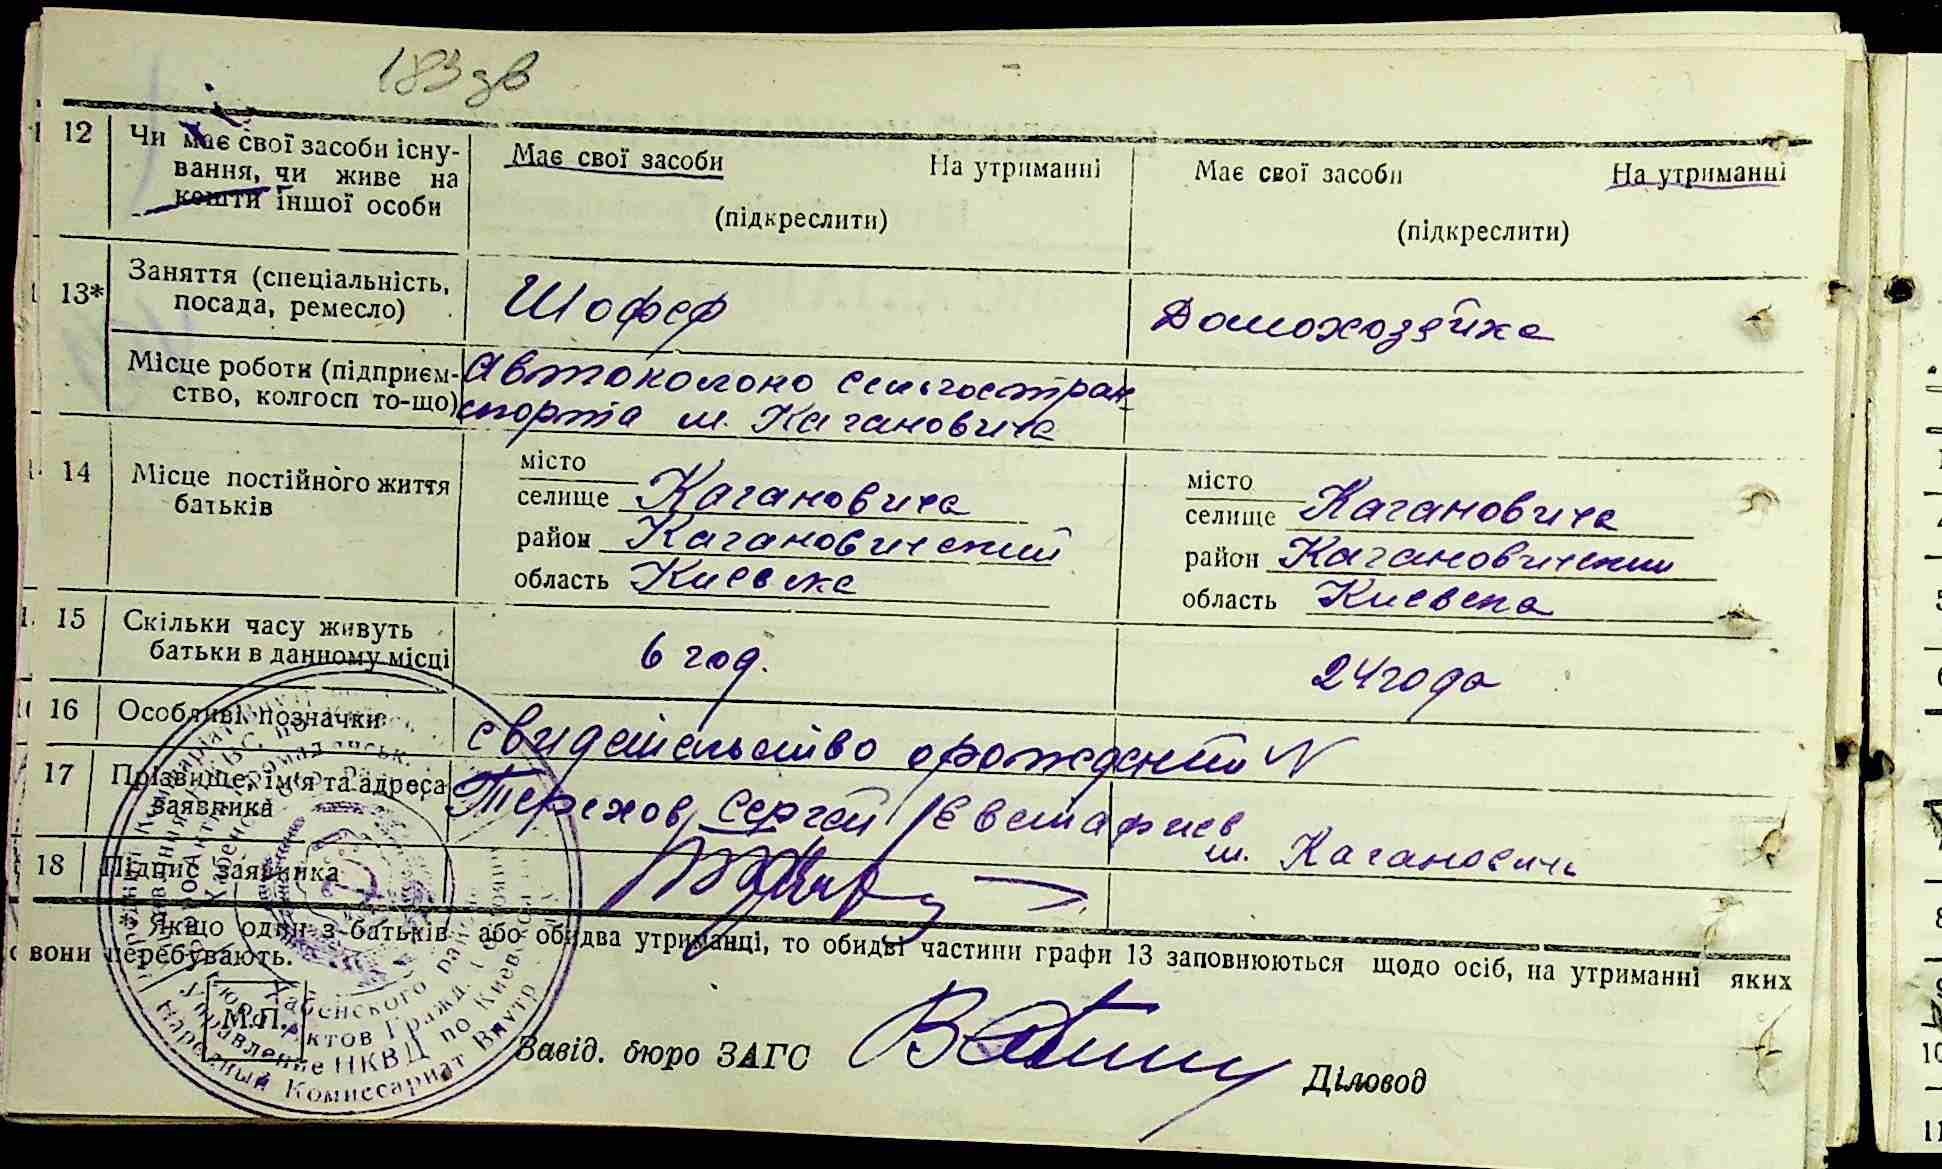 183 зв
12 Чи має свої засоби існу- Має свої засоби На утриманні Має свої засоби На утриманні
вання, чи живе на
кошти іншої особи (підкреслити) (підкреслити)
13* Заняття (спеціальність,
посада, ремесло) Шофер Домохозяйка
Місце роботи (підприєм- Автоколоно сельгостран
ство, колгосп то-що) спорта м. Кагановича
14 Місце постійного життя
батьків
місто місто
селище Кагановича селище Кагановича
район Кагановический район Кагановический
область Киевска область Киевска
15 Скільки часу живуть
батьки в данному місці 6 год. 24 года
16 Особливі позначки свидетельство о рождении N
17 Прізвище, ім'я та адреса
заявника Терехов Сергей Евстафиев
м. Кагановичи
18 Підпис заявника
Якщо один з батьків або обидва утриманці, то обидві частини графи 13 заповнюються щодо осіб, на утриманні яких
вони перебувають.
М.П.
Хабенского
актов Гражд.
Управление НКВД по Киевской
Народный Комиссариат Внутр
Завід. бюро ЗАГС Діловод